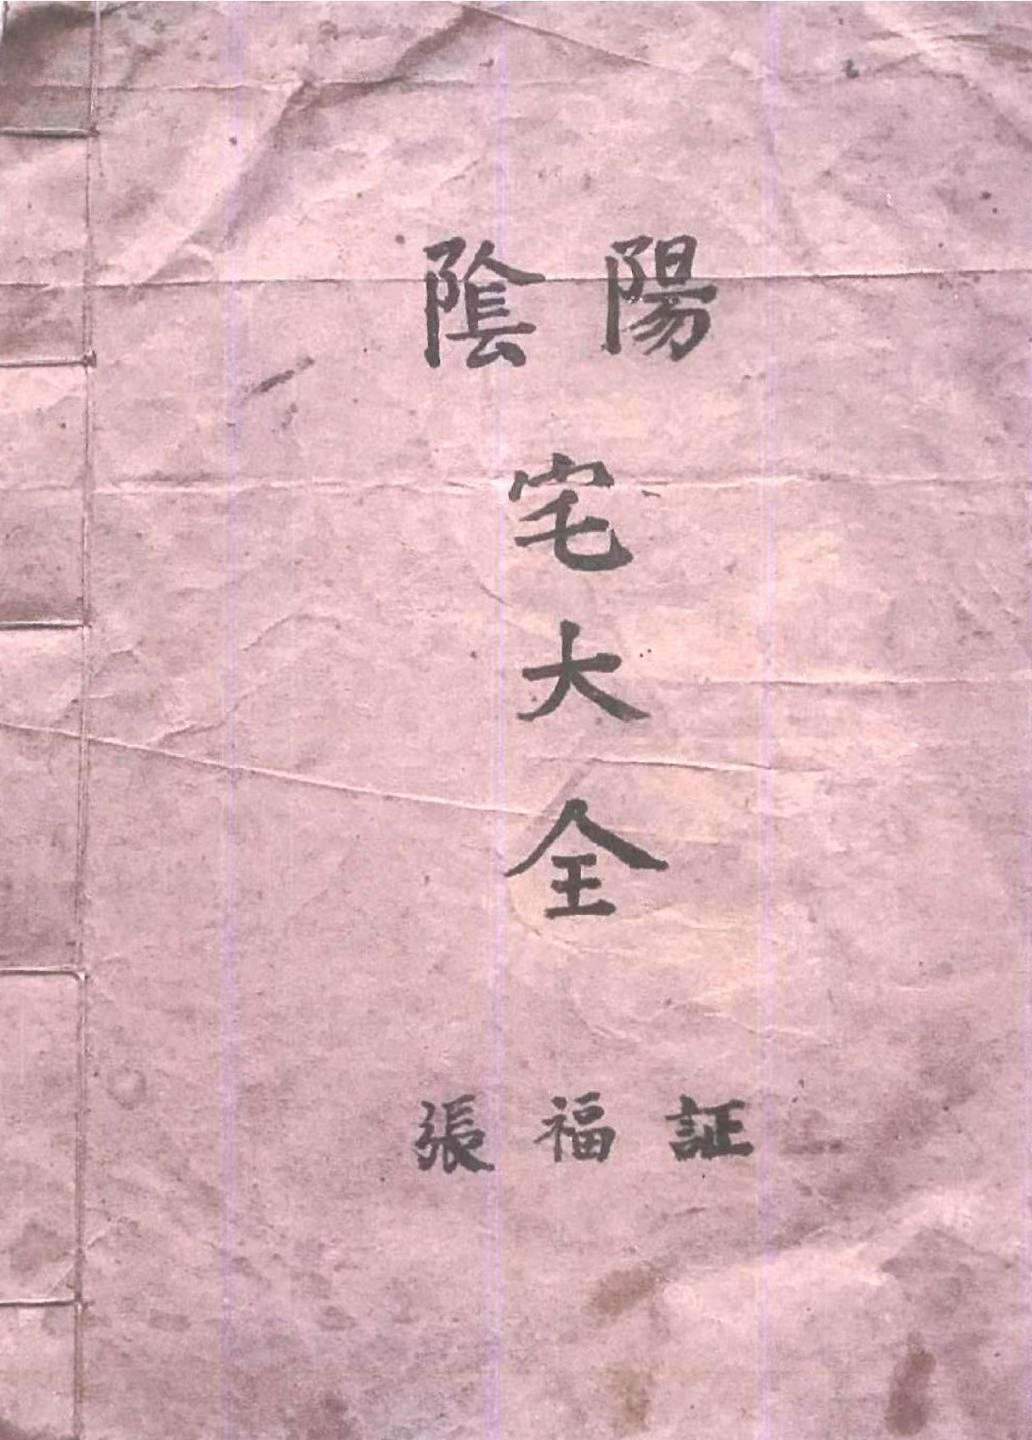 陰陽
宅
大
全
張福証